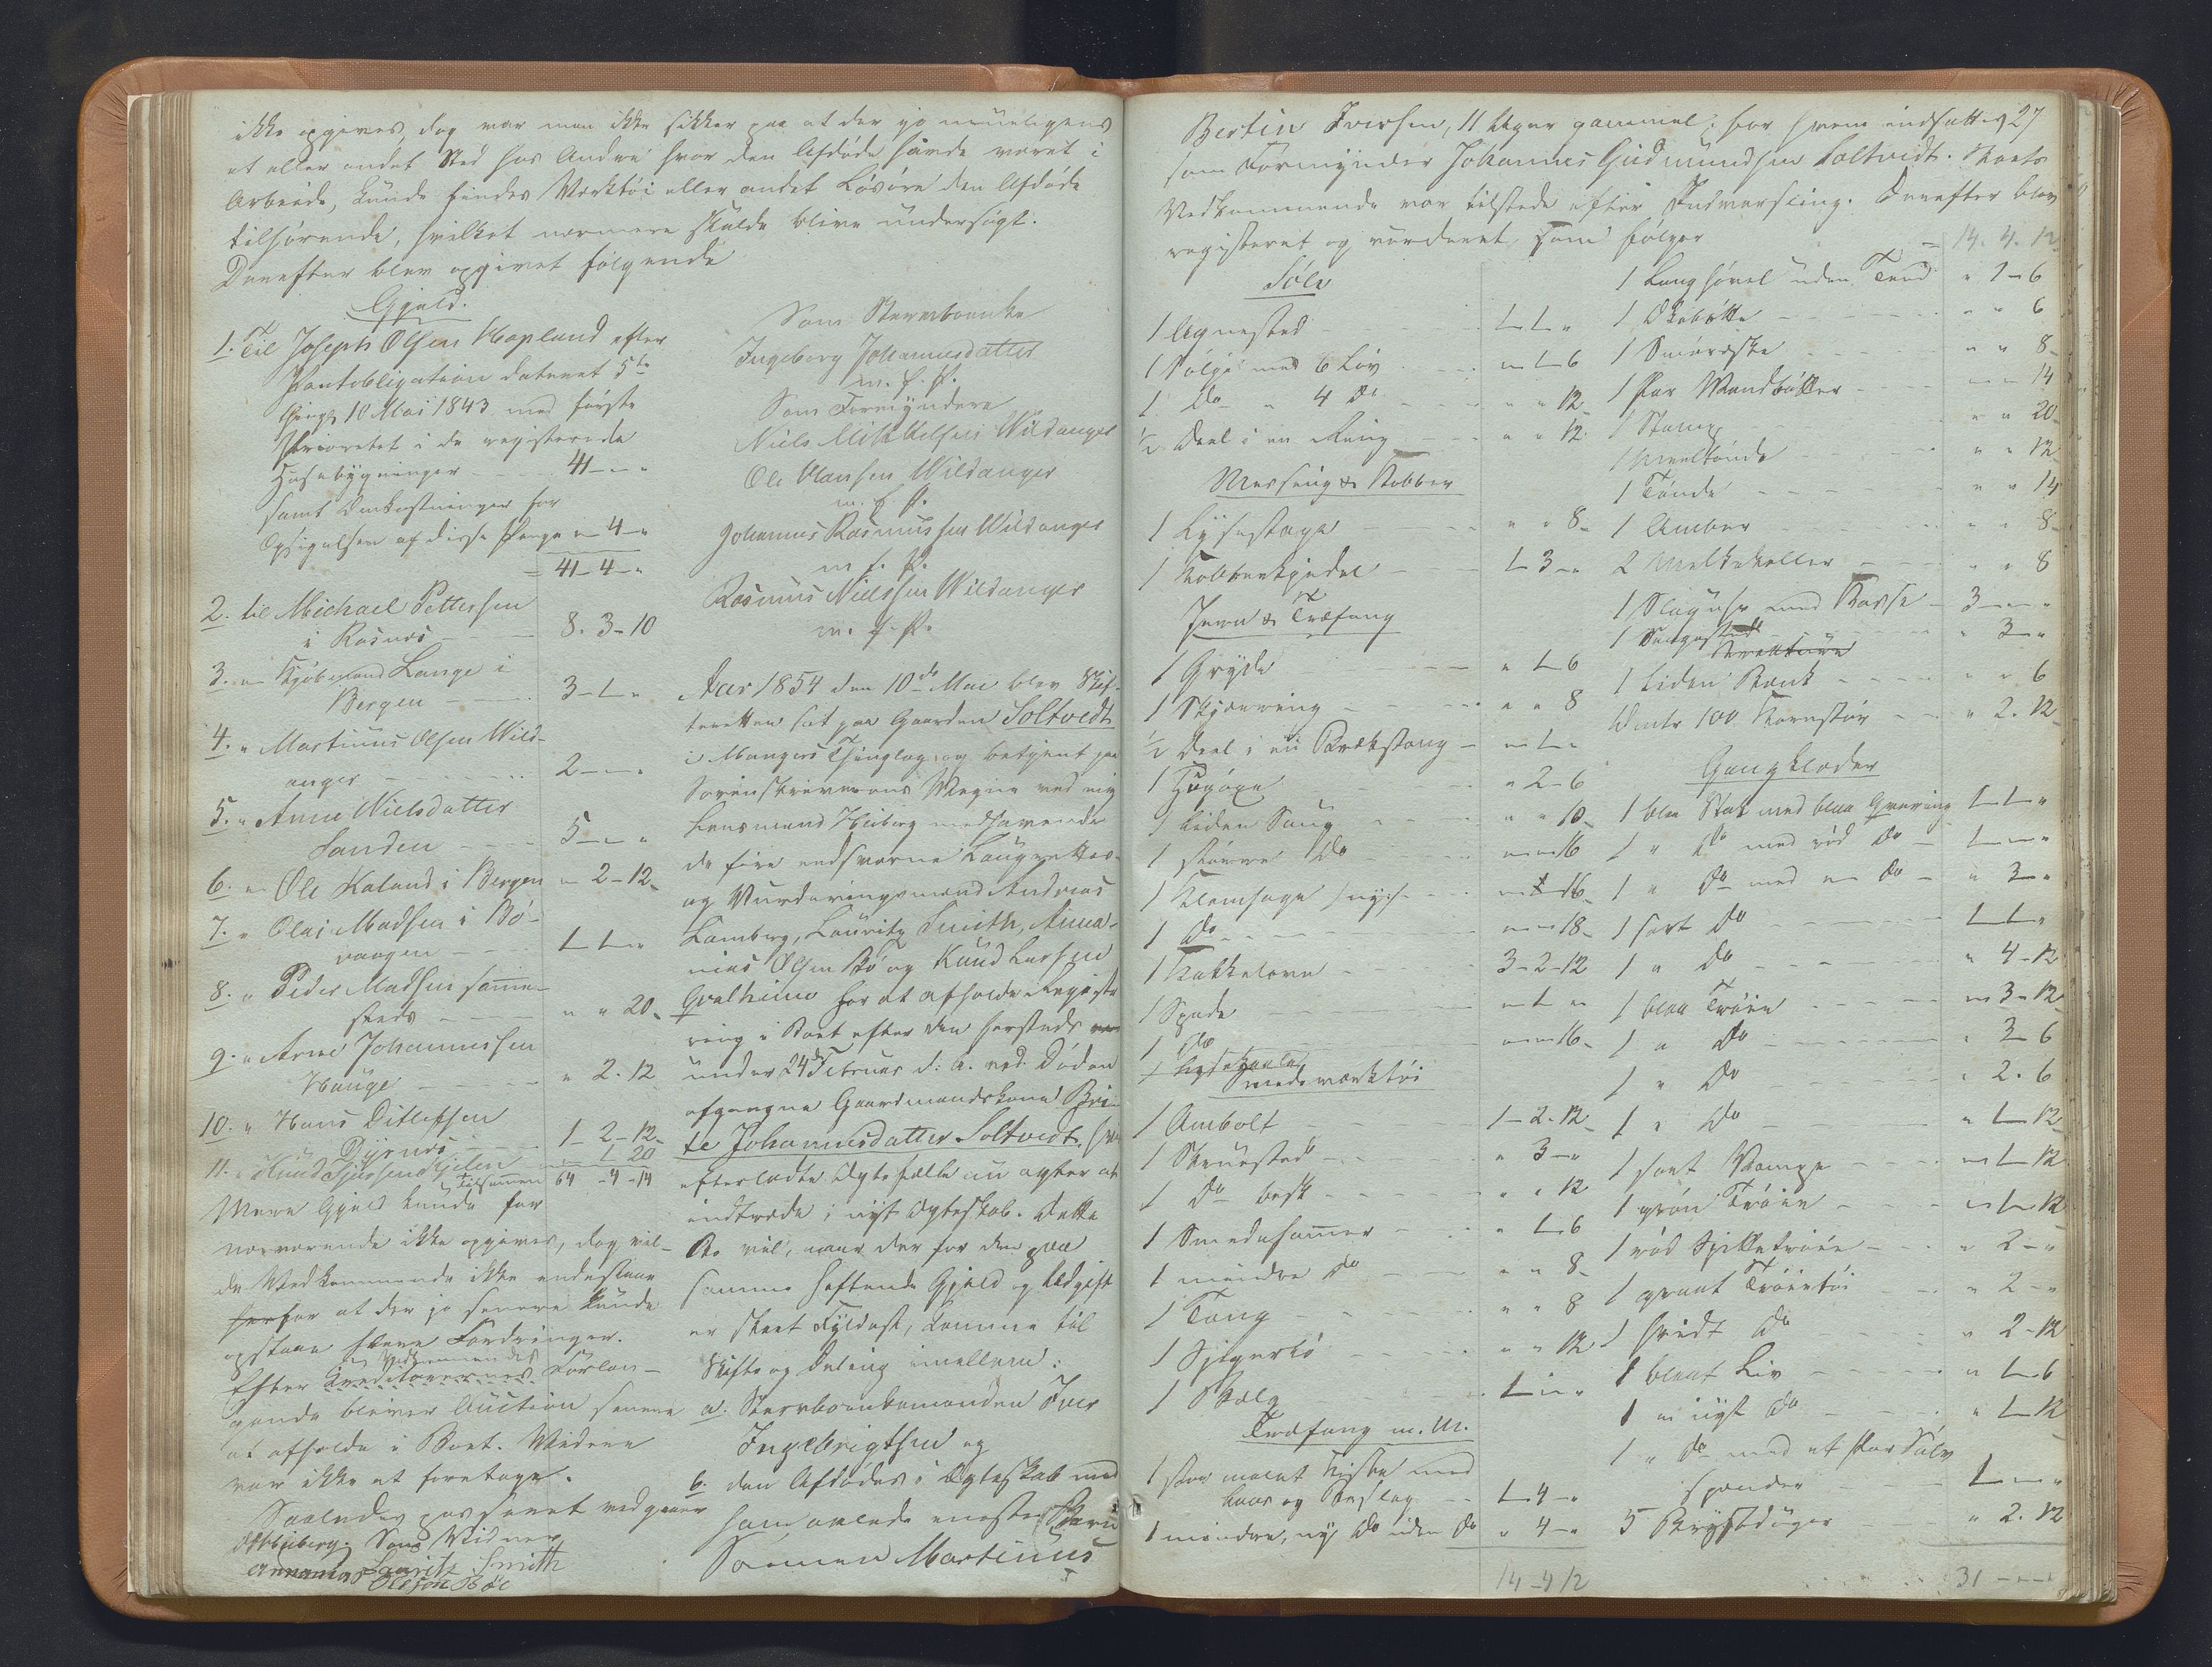 ikke opgives, dog var man ikke sikker paa at der jo mueligens
et eller andet Sted hos Andre hvor den Afdøde havde været i
Arbeide, kunde findes Værktøi eller andet Løsøre den Afdøde
tilhørende, hvilket nærmere skulde blive undersøgt.
Derefter blev opgivet følgende
Gjæld.
1. Til Joseph Olsen Hopland efter
Pantobligation dateret 5te
thingl. 10 Mai 1843 med første
Prioritet i de registerede
Husebygninger 41 - " - "
samt Omkostninger for
Opsigelsen af disse Penge " - 4 - "
= 41 - 4 - "
2. til Michael Pettersen
i Rosnes 8. 3 - 10
3. " Kjøbmand Lange i
Bergen 3 - 1 - "
4. " Martinus Olsen Wild-
anger 2 - " - "
5. " Anne Nielsdatter
Sanden 5 - " - "
6. " Ole Kaland i Bergen " - 2 - 12
7. " Olai Madsen i Bø-
vaagen 1 - 1 - "
8. " Peder Madsen samme-
steds " " 20
9. " Arne Johannessen
Hauge " 2. 12
10. " Hans Ditlefsen
Dyrnes 1 - 2 - 12
11. " Knud 1 20
tilsammen 64 - 4 - 14
Mere Gjæld kunde for
nærværende ikke opgives, dog vil-
de Vedkommende ikke indestaae
herfor at der jo senere kunde
opstaae flere Fordringer.
Efter Vedkommendes
Creditorernes Forlan-
gende bliver Auction senere
at afholde i Boet. Videre
var ikke at foretage.
Saaledes passeret vedgaaer
Heiberg. Som Vidner
Lauritz Smith
Annanias Olsson Bøe
Som Stervboenke
Ingeborg Johannesdatter
m. f. P.
Som Formyndere
Niels Mikkelsen Wildanger
Ole Hansen Wildanger
m. f. P.
Johannes Rasmussen Wildanger
m. f. P.
Rasmus Nielssen Wildanger
m. f. P.
Aar 1854 den 10de Mai blev Skif-
teretten sat paa Gaarden Soltvedt
i Mangers Thinglag, og betjent paa
Sorenskriverens Vegne ved mig
Lensmand Heiberg medhavende
de fire edsvorne Laugrettes-
og Vurderingsmænd Andreas
Lamberg, Lauritz Smith, Anna-
nias Olsen Bø og Knud Larsen
Qvalheim for at afholde Registe-
ring i Boet efter den hersteds
under 24de Februar d: A. ved Døden
afgangne Gaardmandskone Bri-
te Johannesdatter Soltvedt, hvis
efterladte Ægtefælle nu agter at
indtræde i nyt Ægteskab. Dette
Bo vil, naar der for den paa
samme heftende Gjæld og Udgift
er skeet Fyldest, komme til
Skifte og Deling imellem:
a. Stervboenkemanden Iver
Ingebrigtsen og
b. den Afdødes i Ægteskab med
ham avlede eneste Barn
Sønnen Martinus
Bertin Iversen, 11 Uger gammel; for hvem indsattes 27
som Formynder Johannes Gudmundsen Soltvedt. Boets
Vedkommende var tilstede efter Indvarsling. Derefter blev
registeret og vurderet, som følger
Sølv
1 Agnested 1 - 1 - "
1 Sølge med 6 Løv " - 1 - 6
1 Do " 4 Do " " 12
1/2 Deel i en Ring " " 12
Messing & Kobber
1 Lysestage " " 8
1 Kobberkjedel 1 - 3 - "
Jern & Træfang
1 Gryde " 1 - 6
1 Skjæring " " 8
1/2 Deel i en Brækstang " - 1 - "
1 Hugøxe " 2 - 6
1 liden Saug " " 10
1 større Do " - " - 16
1 Klemsage " 16
1 Do " - " - 18
1 Kakkelovn 3 - 2 - 12
1 Spade " - 1 - "
1 Do " - " - 16
Smedeværktøi
1 Ambolt 1 - 2 - 12
1 Skruested " 3 - "
1 Do besk " " 12
1 Smedehammer " 1 - 6
1 mindre Do " " 8
1 Tang " " 8
1 " " 12
1 Bælg 1 - " - "
Træfang m. M.
1 stor malet Kiste med
Laas og Beslag 1 - 4 - "
1 mindre, ny Do uden Do " 4 - "
14 - 4 12
= 14. 4. 12
1 Langhøvel uden Tand " 1 - 6
1 " " 6
1 Smøræske " " 8
1 Par Vandbøtter " - " - 14
1 Stamp " " 20
1 Meeltønde " " 12
1 Tønde " " 14
1 Ambar " " 8
2 Melkekoller " " 8
1 Slaguhr med Kasse 3 - " - "
1 Sengested " 3 - "
1 liden Bænk " " 6
Omtr 100 Kornstør " 2. 12
Gangklæder
1 blaa Stak med blaa 1 - 1 - "
1 " Do med rød Do 1 - " - "
1 " Do med " Do " 3 - "
1 sort Do 1 - 1 - "
1 " Do " 4 - 12
1 blaa Trøie " - 3 - 12
1 " Do " 3 - 6
1 " Do " 2. 6
1 " Do " 1 - 12
1 sort " - 1 - 12
1 grøn Trøie " - 1 - 12
1 rød Spilletrøie " 2 - "
1 graat Trøietøi " 2 - "
1 hvidt Do " 2 - 12
1 blaat Liv " 1 - 6
1 " nyt Do " 1 - 12
1 " Do med et Par Sølv
spænder 1 - " - "
5 Brystduger " 2. 12
31 - " - "